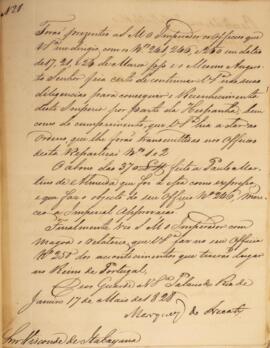 Nº 21
Forão presentes a S M O Imperador os Officios que
V Sª me dirigio com os Nºs 241, 246, e 250 em datas
de 17, 21, e 26 de Março pp e o Mesmo Augusto
Senhor fica certo de continuar V Sª nas suas
diligencias para conseguir o Reconhecimento
deste Imperio por parte da Hespanha, bem
como do cumprimento, que V Sª hia a dar as
Ordens que lhe forão transmittidas nos Officios
desta Repartição Nºs 1 e 2
O abono das feito a Paulo Martins
de Almeida que foi a esse como expresso,
e que faz o objecto do seu Officio Nº 246, mereceo
a Imperial Approvação.
Finalmente vio S M O Imperador com
magoa o Relatorio, que V Sª faz no seu Officio
Nº 250 dos acontecimentos que tiverão lugar
no Reino de Portugal.
Deos Guarde a V Sª Palacio do Rio de
Janeiro 17 de Maio de 1828
Marquez de Aracaty
Snr Visconde de Itabayana